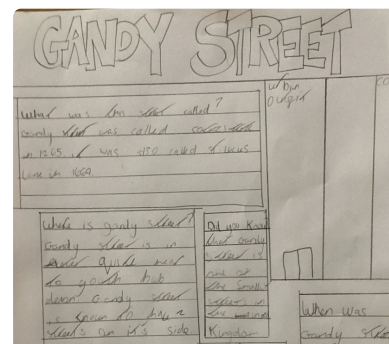 GANDY STREET
What was this street called?
Gandy street was called
in 1265. it was also called St lucus
Lane in 1664.
Where is gandy street?
Gandy street is in
quite near
to goth hub
devon Gandy street
is known to have
on it's side
Did you know
that Gandy
street is
one of
the Smallest
streets in
the
Kingdom
When was
Gandy street